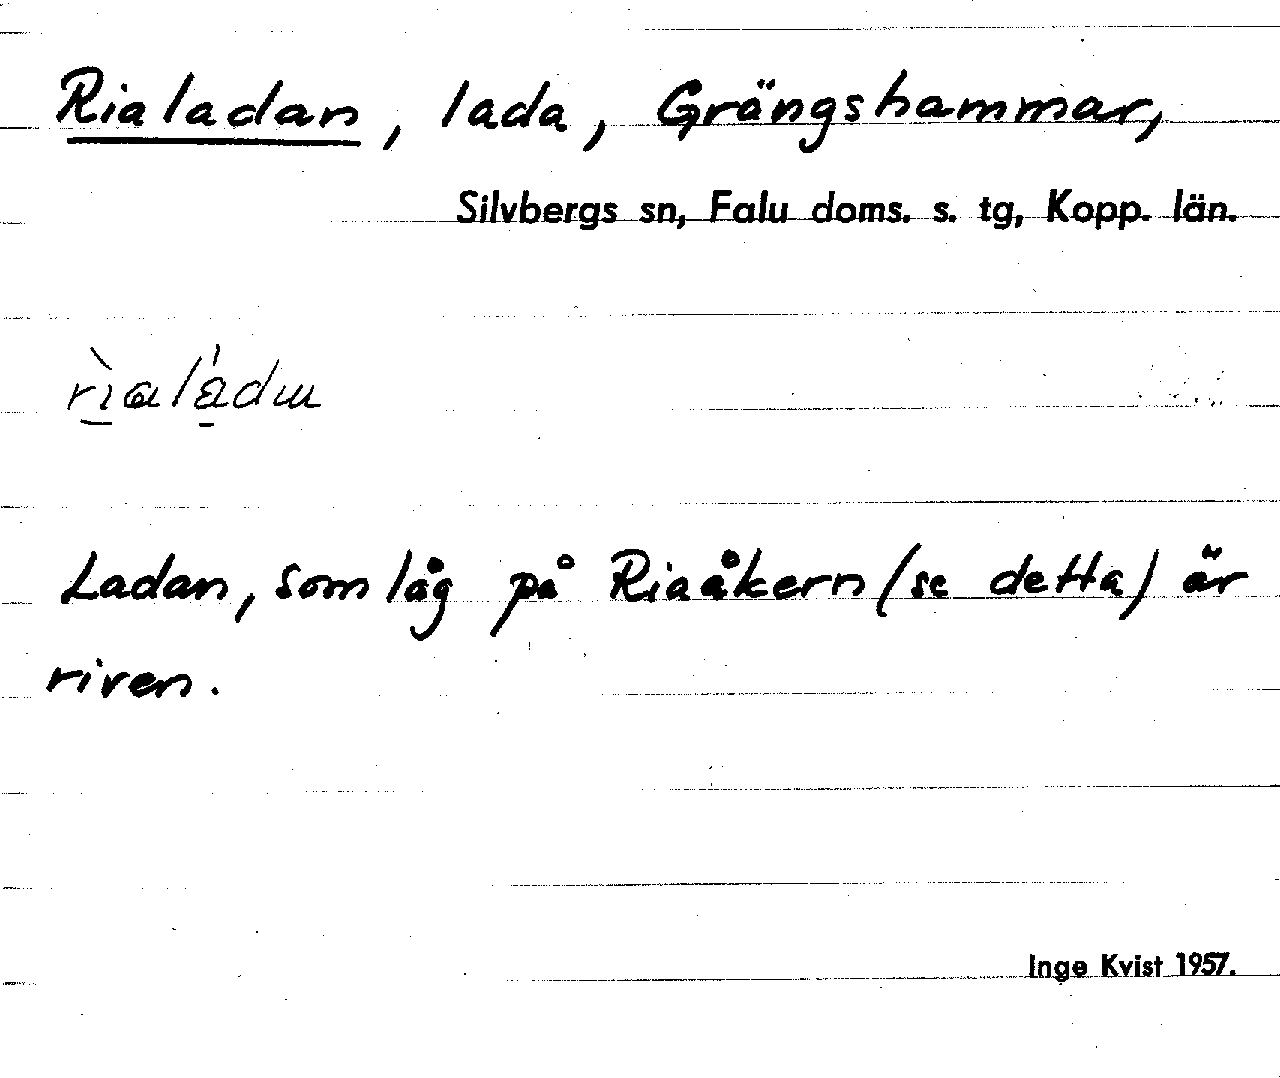 Rialadan, lada, Grängshammar,
Silvbergs sn, Falu doms. s. tg, Kopp. län.
Ladan, som låg på Riaåkern (se detta) är
riven.
Inge Kvist 1957.